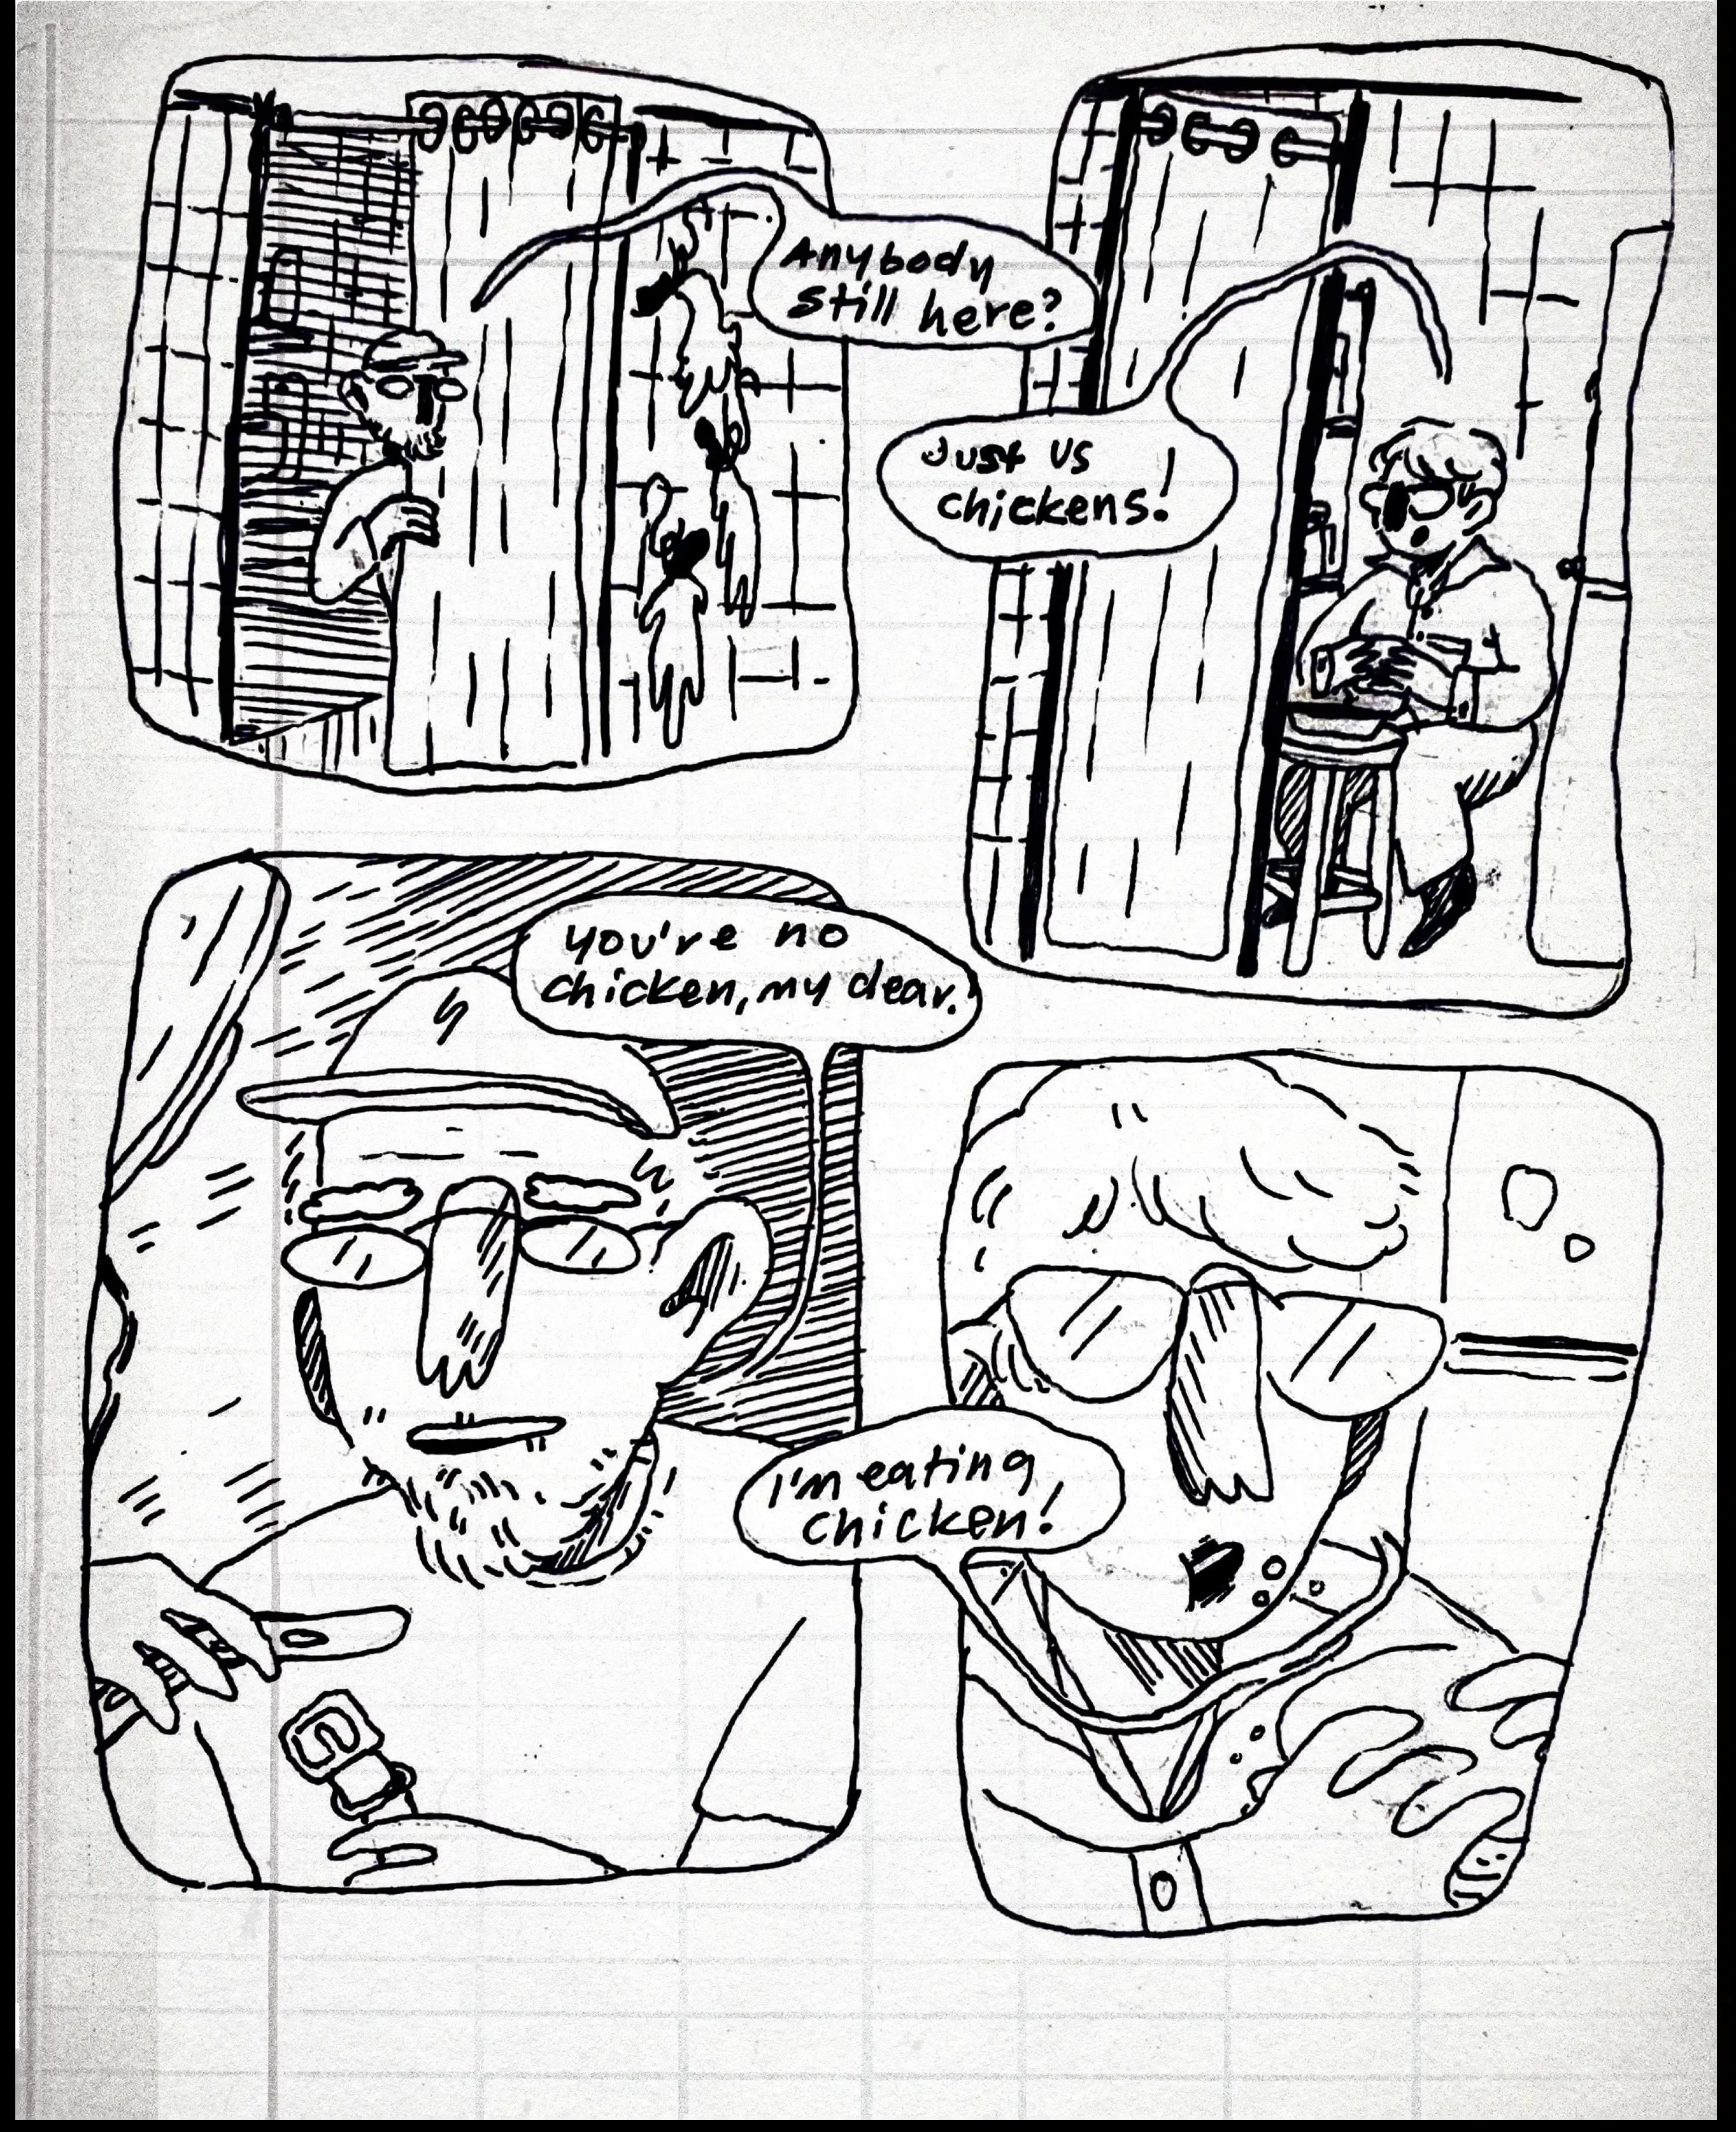 Anybody
still here?
Just us
chickens!
you're no
chicken, my dear.
I'm eating
chicken!